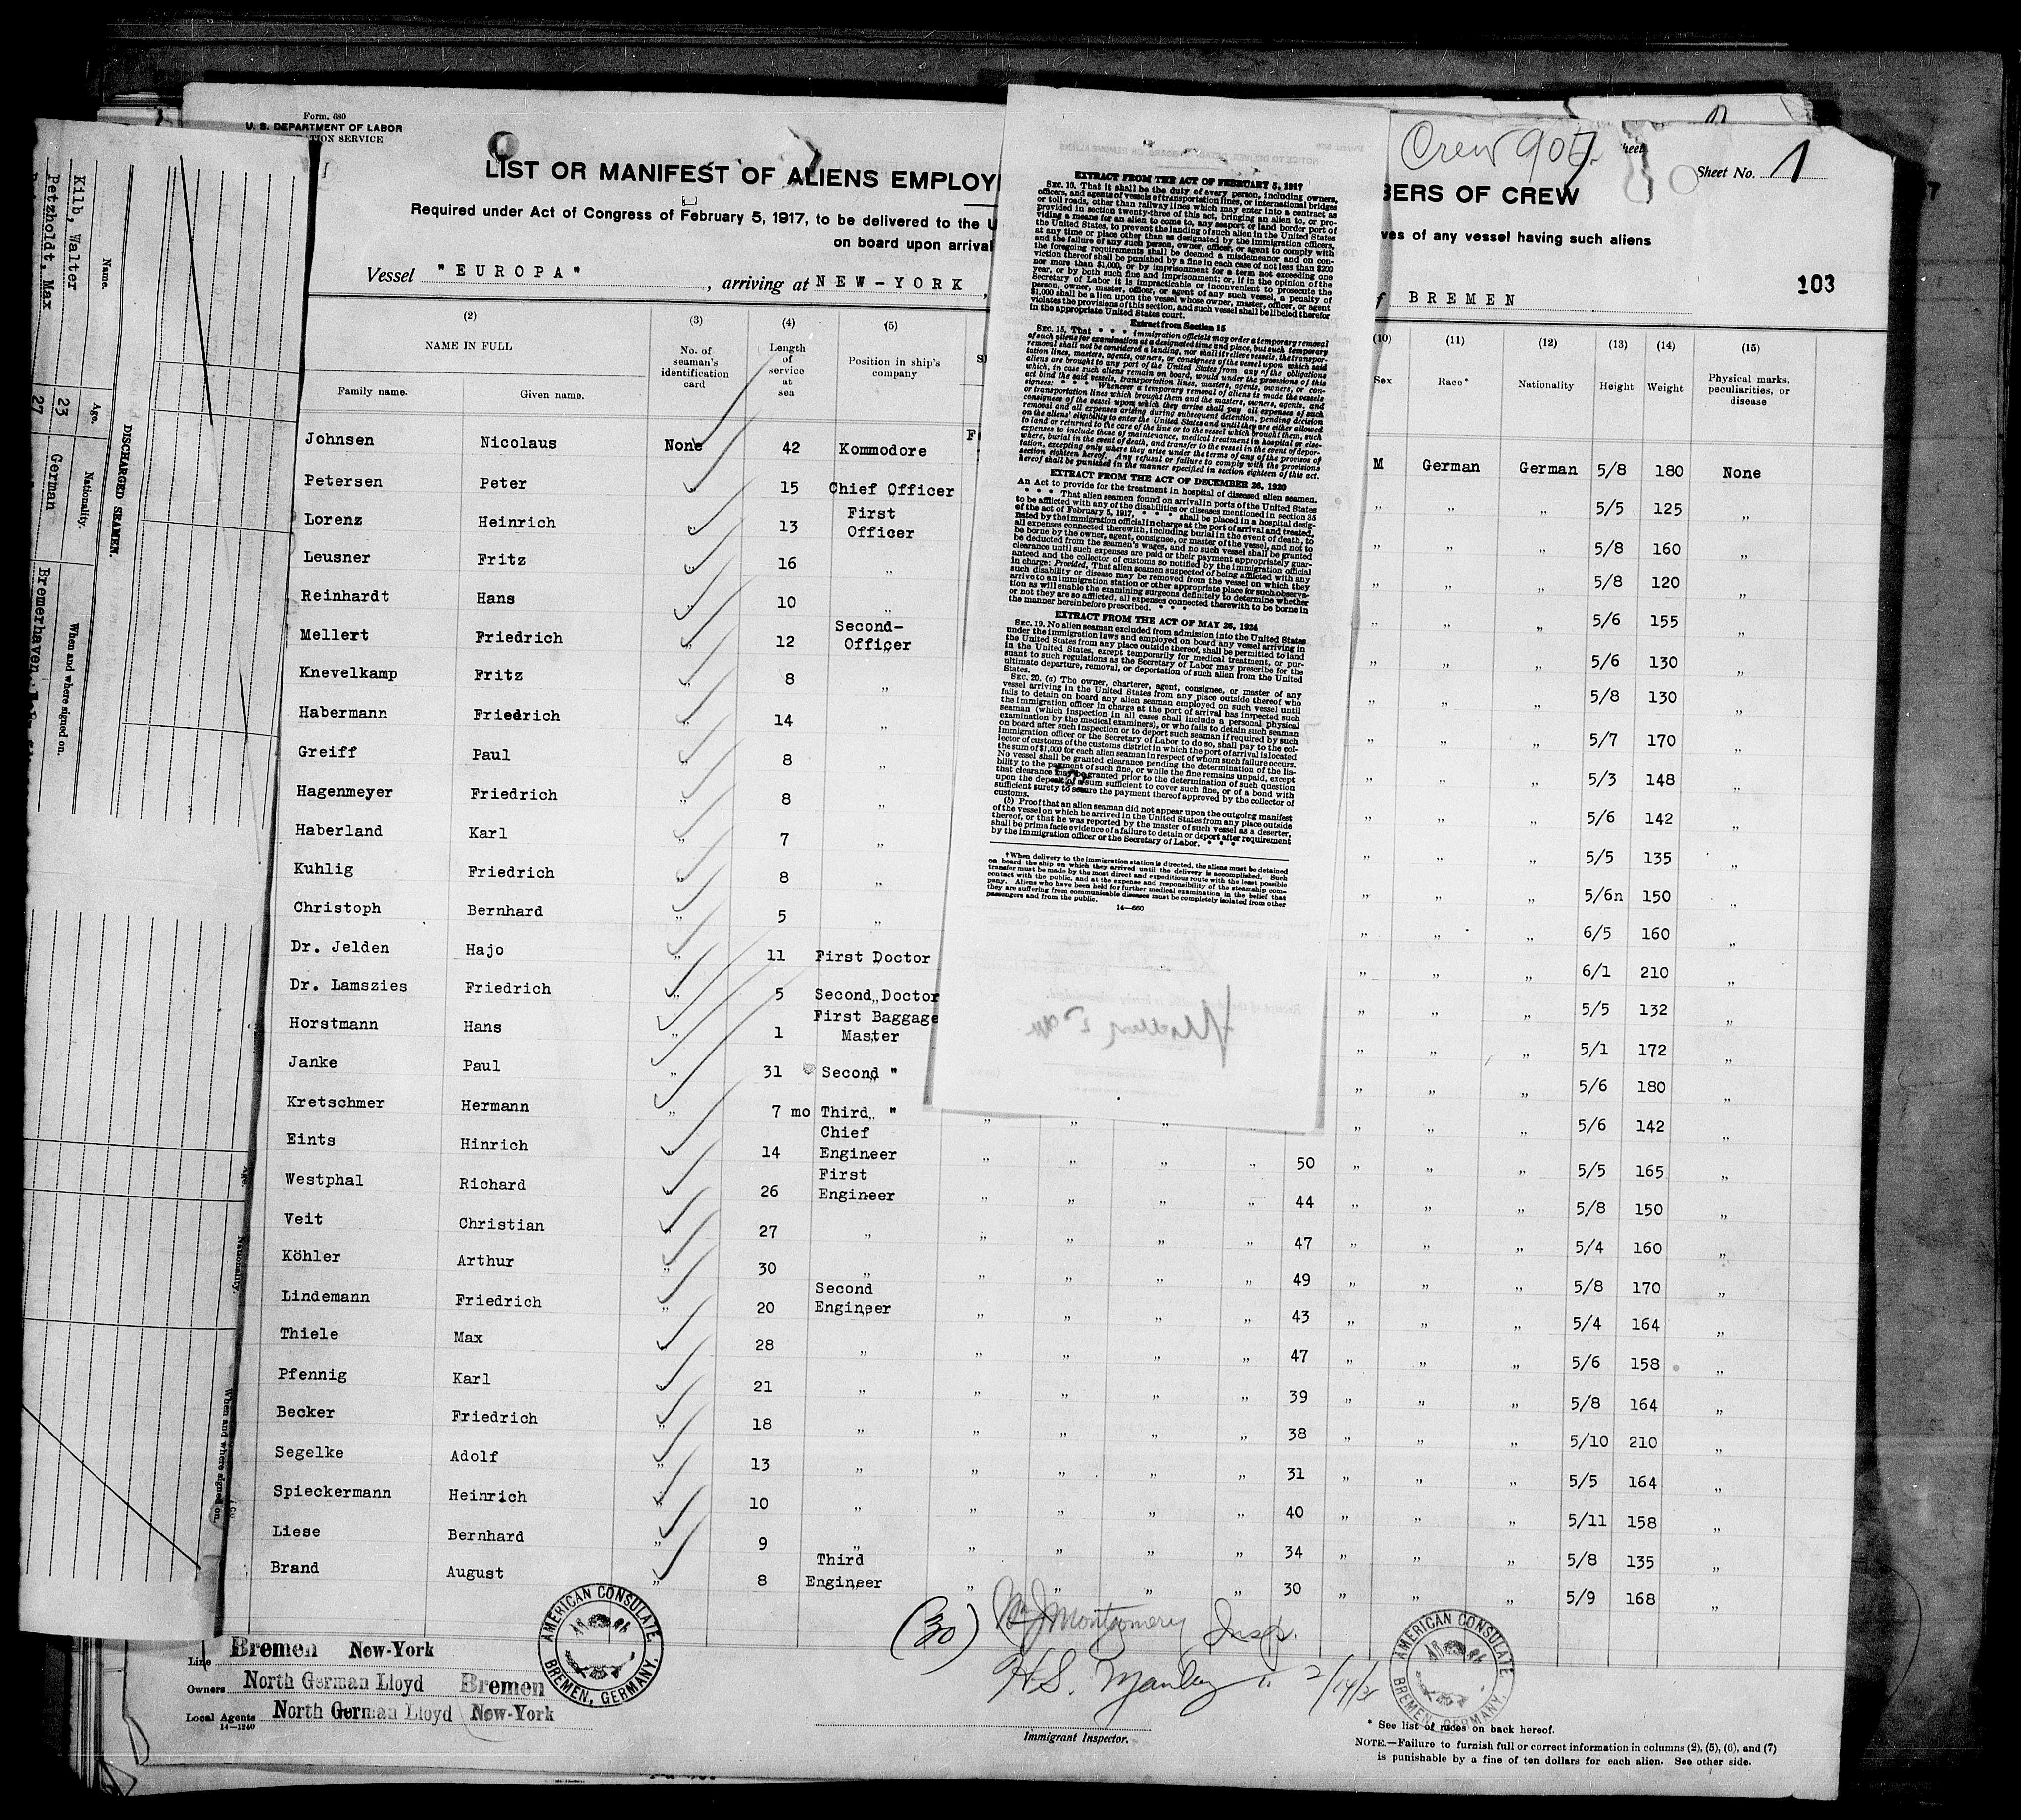 Form. 680
U. S. DEPARTMENT OF LABOR
SERVICE
LIST OR MANIFEST OF ALIENS EMPLOY
BERS OF CREW
Crew 907
Sheet No. 1
Required under Act of Congress of February 5, 1917, to be delivered to the U
ves of any vessel having such aliens
on board upon arrival
Vessel "EUROPA", arriving at NEW-YORK,
BREMEN
103
(2) (3) (4) (5) (10) (11) (12) (13) (14) (15)
NAME IN FULL
Family name. Given name.
No. of seaman's identification card
Length of service at sea
Position in ship's company
Sex Race* Nationality Height Weight Physical marks, peculiarities, or disease
Johnsen Nicolaus None 42 Kommodore M German German 5/8 180 None
Petersen Peter " 15 Chief Officer " " " 5/5 125 "
Lorenz Heinrich " 13 First Officer " " " 5/8 160 "
Leusner Fritz " 16 " " " " 5/8 120 "
Reinhardt Hans " 10 " " " " 5/6 155 "
Mellert Friedrich " 12 Second-Officer " " " 5/6 130 "
Knevelkamp Fritz " 8 " " " " 5/8 130 "
Habermann Friedrich " 14 " " " " 5/7 170 "
Greiff Paul " 8 " " " " 5/3 148 "
Hagenmeyer Friedrich " 8 " " " " 5/6 142 "
Haberland Karl " 7 " " " " 5/5 135 "
Kuhlig Friedrich " 8 " " " " 5/6n 150 "
Christoph Bernhard " 5 " " " " 6/5 160 "
Dr. Jelden Hajo " 11 First Doctor " " " 6/1 210 "
Dr. Lamszies Friedrich " 5 Second Doctor " " " 5/5 132 "
Horstmann Hans " 1 First Baggage Master " " " 5/1 172 "
Janke Paul " 31 Second " " " " 5/6 180 "
Kretschmer Hermann " 7 mo Third " " " " " " " " 5/6 142 "
Eints Hinrich " 14 Chief Engineer " " " " 50 " " " 5/5 165 "
Westphal Richard " 26 First Engineer " " " " 44 " " " 5/8 150 "
Veit Christian " 27 " " " " " 47 " " " 5/4 160 "
Köhler Arthur " 30 " " " " " 49 " " " 5/8 170 "
Lindemann Friedrich " 20 Second Engineer " " " " 43 " " " 5/4 164 "
Thiele Max " 28 " " " " " 47 " " " 5/6 158 "
Pfennig Karl " 21 " " " " " 39 " " " 5/8 164 "
Becker Friedrich " 18 " " " " " 38 " " " 5/10 210 "
Segelke Adolf " 13 " " " " " 31 " " " 5/5 164 "
Spieckermann Heinrich " 10 " " " " " 40 " " " 5/11 158 "
Liese Bernhard " 9 " " " " " 34 " " " 5/8 135 "
Brand August " 8 Third Engineer " " " " 30 " " " 5/9 168 "
Line Bremen New-York
Owners North German Lloyd Bremen
Local Agents North German Lloyd New-York
14-1240
AMERICAN CONSULATE
BREMEN, GERMANY.
(30) Montgomery Insp.
H.S. Manley " 2/14/31
Immigrant Inspector.
AMERICAN CONSULATE
BREMEN, GERMANY.
* See list of races on back hereof.
NOTE.—Failure to furnish full or correct information in columns (2), (5), (6), and (7)
is punishable by a fine of ten dollars for each alien. See other side.
EXTRACT FROM THE ACT OF FEBRUARY 5, 1917
SEC. 10. That it shall be the duty of every person, including owners,
officers, and agents of vessels of transportation lines, or international bridges
or toll roads, other than railway lines which may enter into a contract as
provided in section twenty-three of this act, bringing an alien to, or pro-
viding a means for an alien to come to, any seaport or land border port of
the United States, to prevent the landing of such alien in the United States
at any time or place other than as designated by the immigration officers,
and the failure of any such person, owner, officer, or agent to comply with
the foregoing requirements shall be deemed a misdemeanor and on con-
viction thereof shall be punished by a fine in each case of not less than $200
nor more than $1,000, or by imprisonment for a term not exceeding one
year, or by both such fine and imprisonment; or, if in the opinion of the
Secretary of Labor it is impracticable or inconvenient to prosecute the
person, owner, master, officer, or agent of any such vessel, a penalty of
$1,000 shall be a lien upon the vessel whose owner, master, officer, or agent
violates the provisions of this section, and such vessel shall be libeled therefor
in the appropriate United States court.
Extract from Section 15
SEC. 15. That * * * immigration officials may order a temporary removal
of such aliens for examination at a designated time and place, but such temporary
removal shall not be considered a landing, nor shall it relieve vessels, the transpor-
tation lines, masters, agents, owners, or consignees of the vessel upon which said
aliens are brought to any port of the United States from any of the obligations
which, in case such aliens remain on board, would under the provisions of this
act bind the said vessels, transportation lines, masters, agents, owners, or con-
signees: * * * Whenever a temporary removal of aliens is made the vessels
or transportation lines which brought them and the masters, owners, agents, and
consignees of the vessel upon which they arrive shall pay all expenses of such
removal and all expenses arising during subsequent detention, pending decision
on the aliens' eligibility to enter the United States and until they are either allowed
to land or returned to the care of the line or to the vessel which brought them, such
expenses to include those of maintenance, medical treatment in hospital or else-
where, burial in the event of death, and transfer to the vessel in the event of depor-
tation, excepting only where they arise under the terms of any of the provisos of
section eighteen hereof. Any refusal or failure to comply with the provisions
hereof shall be punished in the manner specified in section eighteen of this act.
EXTRACT FROM THE ACT OF DECEMBER 26, 1920
An Act to provide for the treatment in hospital of diseased alien seamen.
* * * That alien seamen found on arrival in ports of the United States
to be afflicted with any of the disabilities or diseases mentioned in section 35
of the act of February 5, 1917, * * * shall be placed in a hospital desig-
nated by the immigration official in charge at the port of arrival and treated,
all expenses connected therewith, including burial in the event of death, to
be borne by the owner, agent, consignee, or master of the vessel, and not to
be deducted from the seamen's wages, and no such vessel shall be granted
clearance until such expenses are paid or their payment appropriately guar-
anteed and the collector of customs so notified by the immigration official
in charge: Provided, That alien seamen suspected of being afflicted with any
such disability or disease may be removed from the vessel on which they
arrive to an immigration station or other appropriate place for such observa-
tion as will enable the examining surgeons definitely to determine whether
or not they are so afflicted, all expenses connected therewith to be borne in
the manner hereinbefore prescribed. * * *
EXTRACT FROM THE ACT OF MAY 26, 1924
SEC. 19. No alien seaman excluded from admission into the United States
under the immigration laws and employed on board any vessel arriving in
the United States from any place outside thereof, shall be permitted to land
in the United States, except temporarily for medical treatment, or pur-
suant to such regulations as the Secretary of Labor may prescribe for the
ultimate departure, removal, or deportation of such alien from the United
States.
SEC. 20. (a) The owner, charterer, agent, consignee, or master of any
vessel arriving in the United States from any place outside thereof who
fails to detain on board any alien seaman employed on such vessel until
the immigration officer in charge at the port of arrival has inspected such
seaman (which inspection in all cases shall include a personal physical
examination by the medical examiners), or who fails to detain such seaman
on board after such inspection or to deport such seaman if required by such
immigration officer or the Secretary of Labor to do so, shall pay to the col-
lector of customs of the customs district in which the port of arrival is located
the sum of $1,000 for each alien seaman in respect of whom such failure occurs.
No vessel shall be granted clearance pending the determination of the lia-
bility to the payment of such fine, or while the fine remains unpaid, except
that clearance may be granted prior to the determination of such question
upon the deposit of a sum sufficient to cover such fine, or of a bond with
sufficient surety to secure the payment thereof approved by the collector of
customs.
(b) Proof that an alien seaman did not appear upon the outgoing manifest
of the vessel on which he arrived in the United States from any place outside
thereof, or that he was reported by the master of such vessel as a deserter,
shall be prima facie evidence of a failure to detain or deport after requirement
by the immigration officer or the Secretary of Labor. * * *
† When delivery to the immigration station is directed, the aliens must be detained
on board the ship on which they arrived until the delivery is accomplished. Such
transfer must be made by the most direct and expeditious route with the least possible
contact with the public, and at the expense and responsibility of the steamship com-
pany. Aliens who have been held for further medical examination in the belief that
they are suffering from communicable diseases must be completely isolated from other
passengers and from the public.
14—660
DISCHARGED SEAMEN.
Name. Age. Nationality. When and where signed on.
Kilb, Walter 23 German Bremerhaven,
Petzholdt, Max 27
Age. Nationality. When and where signed on.